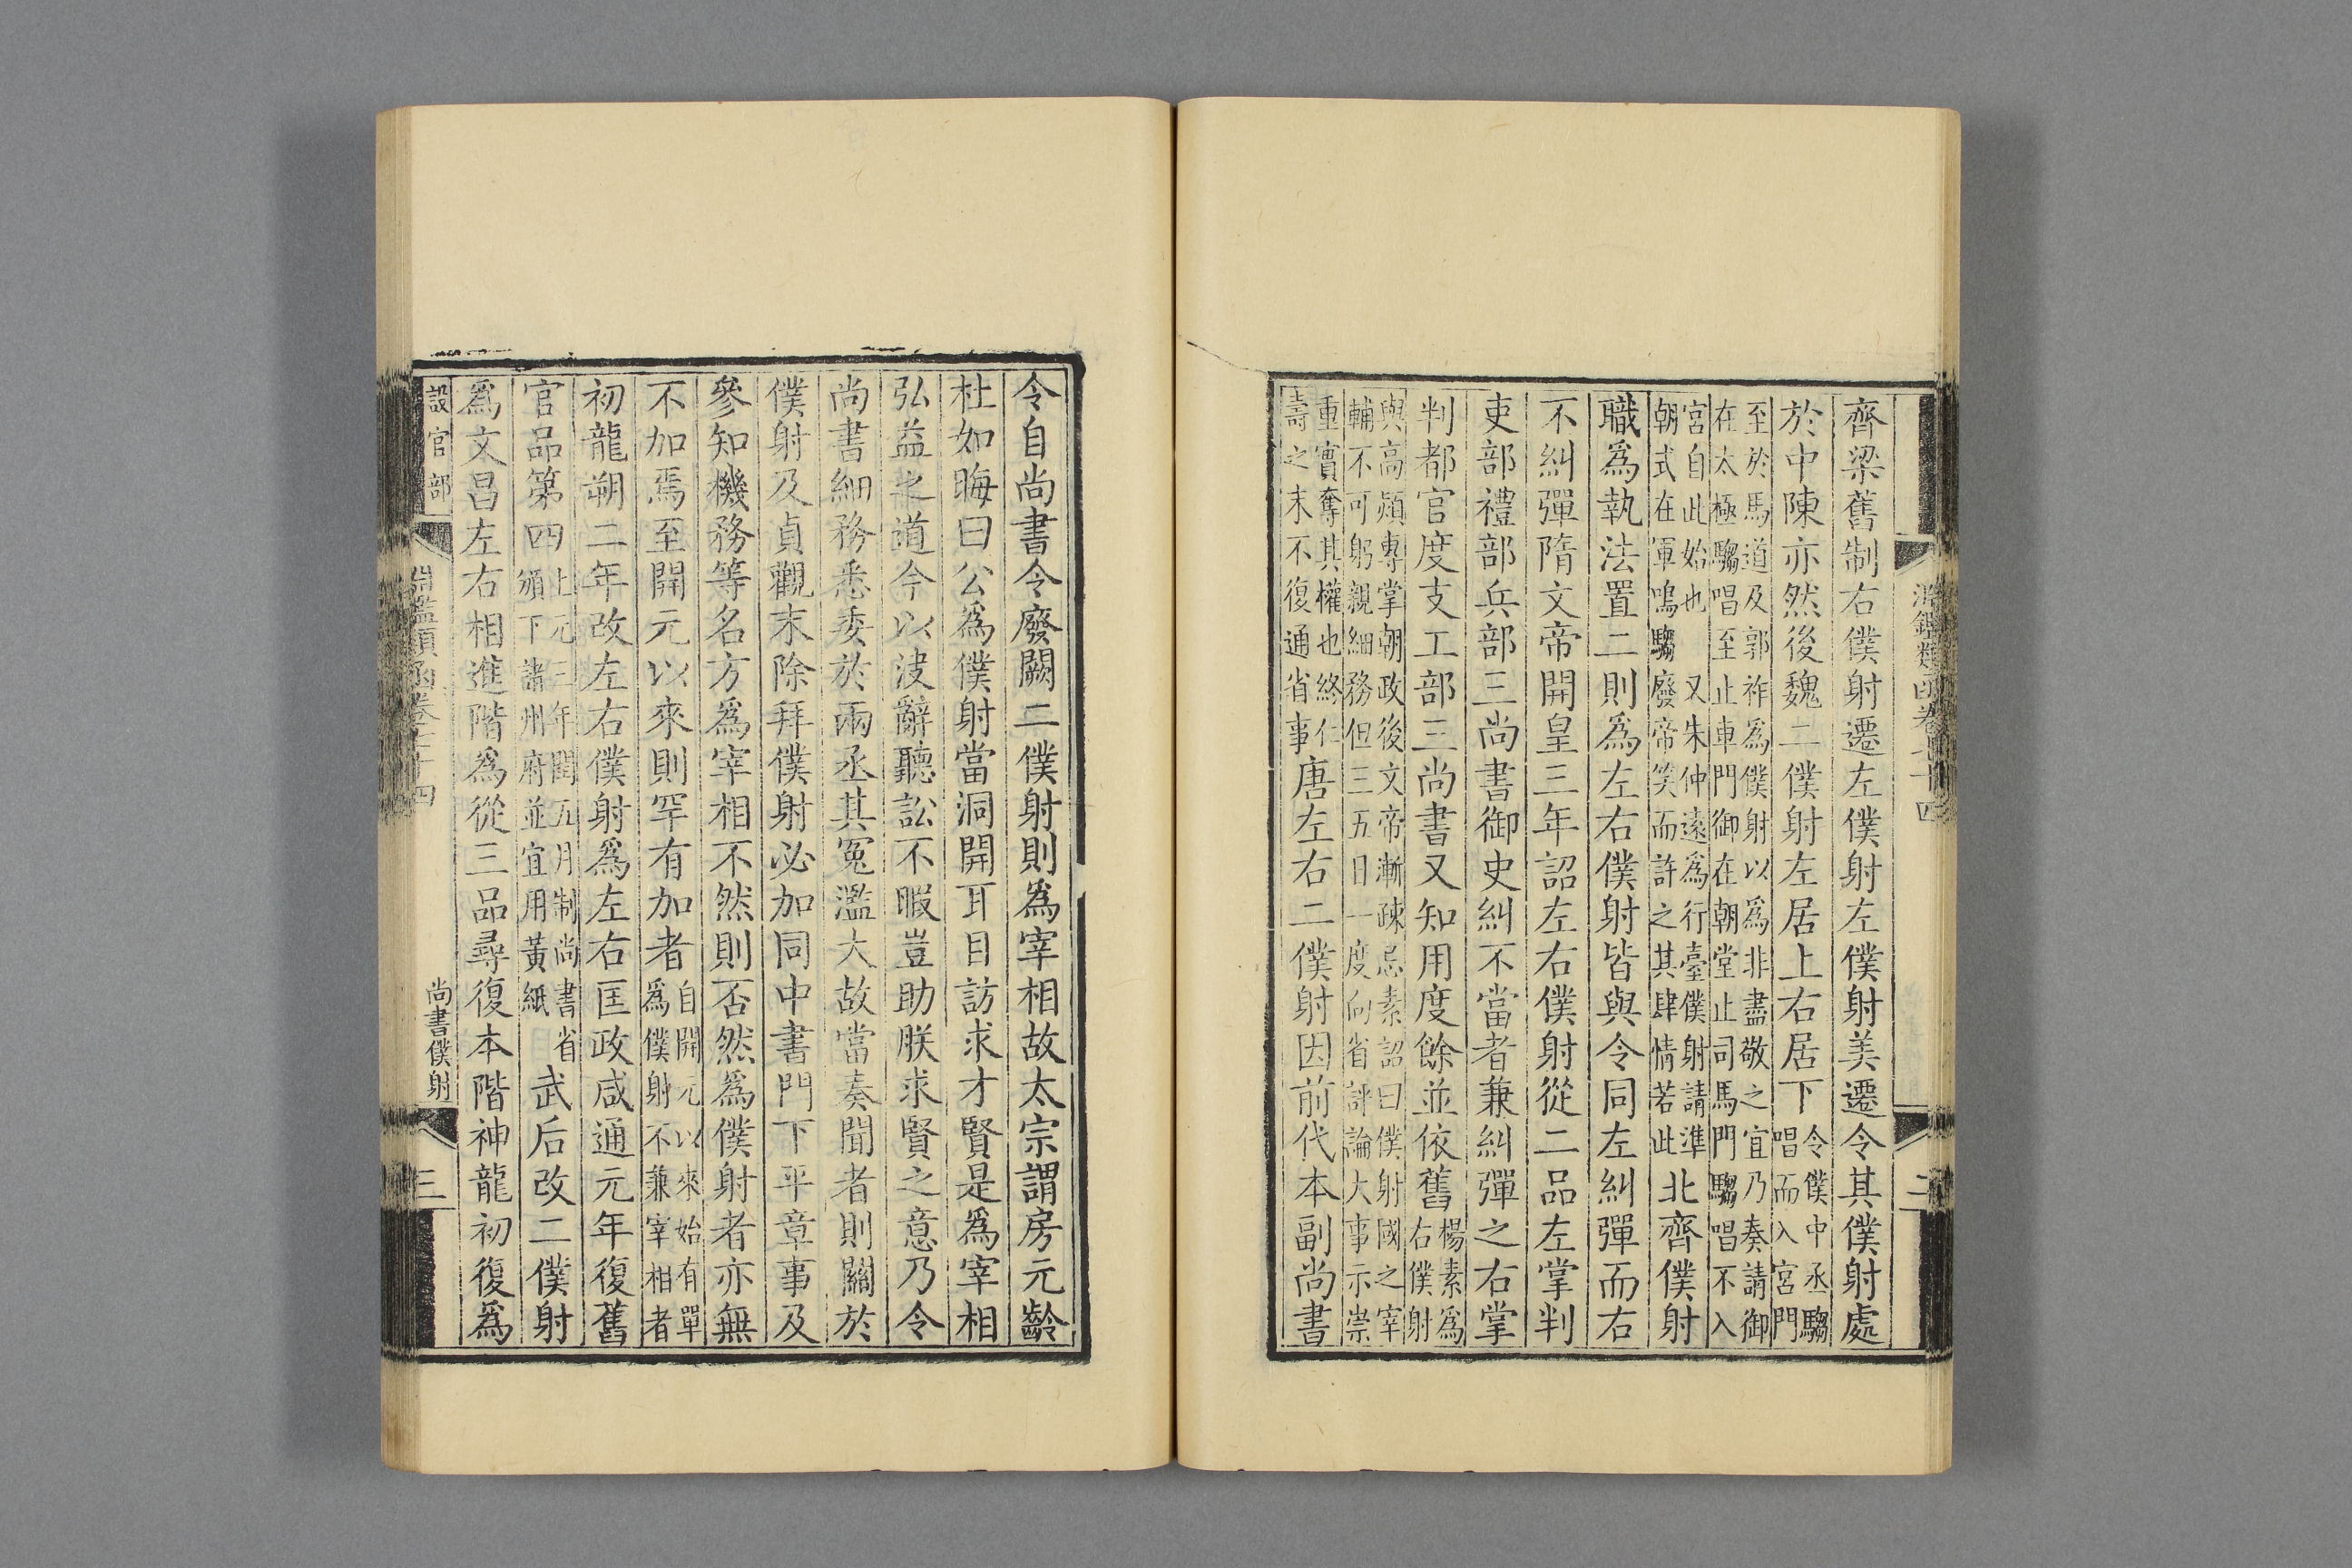 淵鑑類函卷七十四
二
齊梁舊制右僕射遷左僕射左僕射美遷令其僕射處
於中陳亦然後魏二僕射左居上右居下令僕中丞騶唱而入宮門
至於馬道及郭祚爲僕射以爲非盡敬之宜乃奏請御
在太極騶唱至止車門御在朝堂止司馬門騶唱不入
宮自此始也 又朱仲遠爲行臺僕射請準
朝式在軍鳴騶廢帝笑而許之其肆情若此北齊僕射
職爲執法置二則爲左右僕射皆與令同左糾彈而右
不糾彈隋文帝開皇三年詔左右僕射從二品左掌判
吏部禮部兵部三尚書御史糾不當者兼糾彈之右掌
判都官度支工部三尚書又知用度餘並依舊楊素爲右僕射
與高熲專掌朝政後文帝漸疎忌素詔曰僕射國之宰
輔不可躬親細務但三五日一度向省評論大事示崇
重實奪其權也終仁
壽之末不復通省事唐左右二僕射因前代本副尚書
令自尚書令廢闕二僕射則爲宰相故太宗謂房元齡
杜如晦曰公爲僕射當洞開耳目訪求才賢是爲宰相
弘益之道今以決辭聽訟不暇豈助朕求賢之意乃令
尚書細務悉委於兩丞其冤濫大故當奏聞者則關於
僕射及貞觀末除拜僕射必加同中書門下平章事及
參知機務等名方爲宰相不然則否然爲僕射者亦無
不加焉至開元以來則罕有加者自開元以來始有單爲僕射不兼宰相者
初龍朔二年改左右僕射爲左右匡政咸通元年復舊
官品第四上元三年閏五月制尚書省頒下諸州府並宜用黃紙武后改二僕射
爲文昌左右相進階爲從三品尋復本階神龍初復爲
設官部
淵鑑類函卷七十四
尚書僕射
三